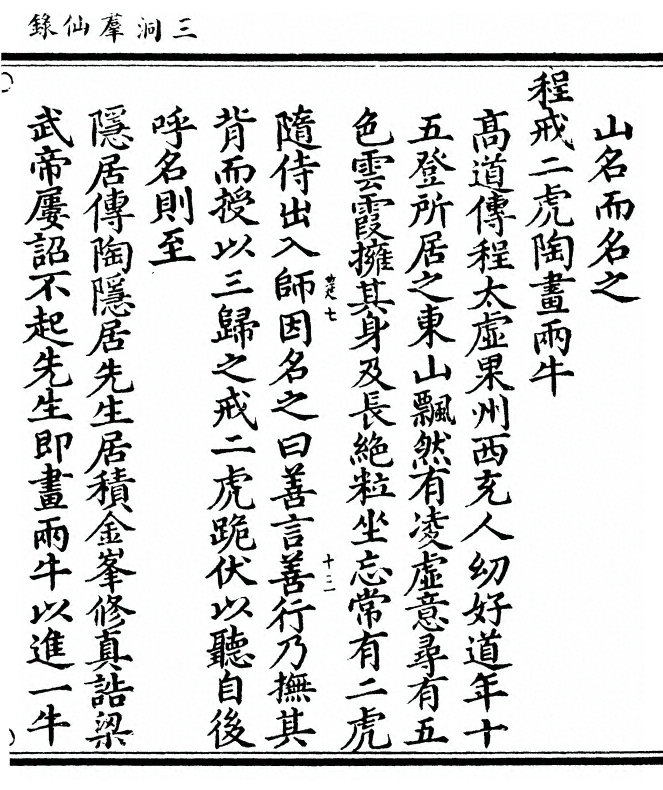 三洞羣仙錄
山名而名之
程戒二虎陶畫兩牛
髙道傳程太虛果州西充人幼好道年十
五登所居之東山飄然有凌虛意尋有五
色雲霞擁其身及長絶粒坐忘常有二虎
隨侍出入師因名之曰善言善行乃撫其
背而授以三歸之戒二虎跪伏以聽自後
呼名則至
隱居傳陶隱居先生居積金峯修真詣梁
武帝屢詔不起先生即畫兩牛以進一牛
七
十三